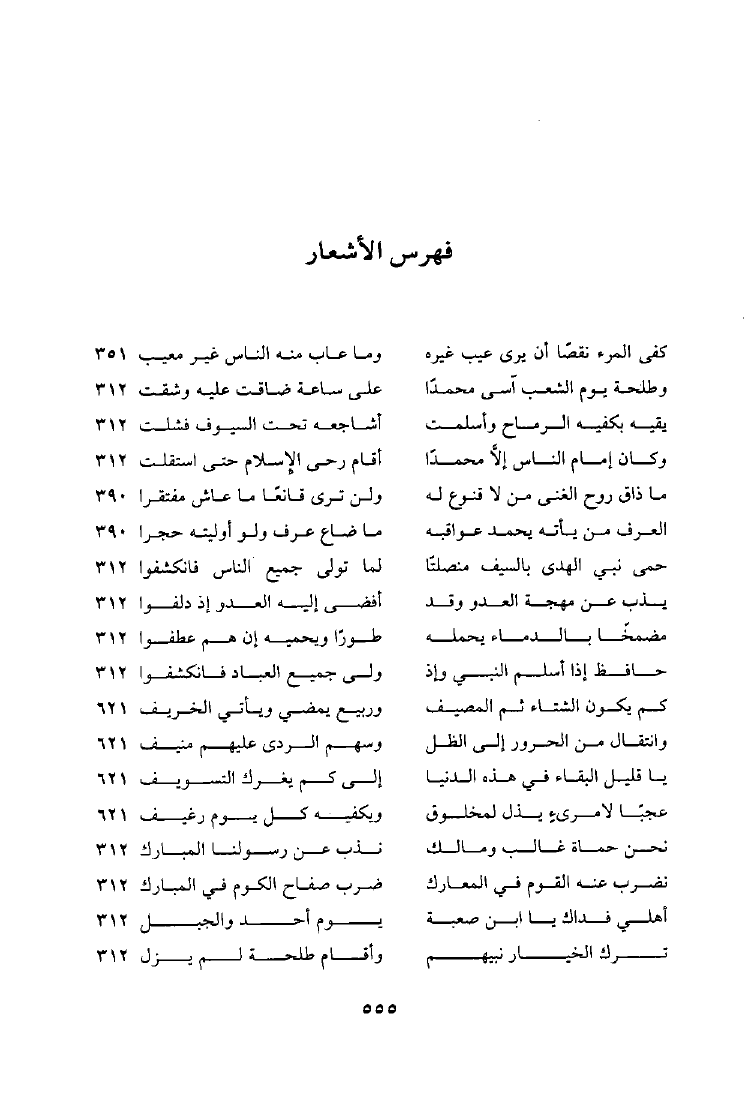 فهرس الأشعار
كفى المرء نقصًا أن يرى عيب غيره وما عاب منه الناس غير معيب ٣٥١
وطلحة يوم الشعب آسى محمدًا على ساعة ضاقت عليه وشقت ٣١٢
يقيه بكفيه الرماح وأسلمت أشاجعه تحت السيوف فشلت ٣١٢
وكان إمام الناس إلاَّ محمدًا أقام رحى الإسلام حتى استقلت ٣١٢
ما ذاق روح الغنى من لا قنوع له ولن ترى قانعًا ما عاش مفتقرا ٣٩٠
العرف من يأته يحمد عواقبه ما ضاع عرف ولو أوليته حجرا ٣٩٠
حمى نبي الهدى بالسيف منصلتًا لما تولى جميع الناس فانكشفوا ٣١٢
يذب عن مهجة العدو وقد أفضى إليه العدو إذ دلفوا ٣١٢
مضمخًا بالدماء يحمله طورًا ويحميه إن هم عطفوا ٣١٢
حافظ إذا أسلم النبي وإذ ولى جميع العباد فانكشفوا ٣١٢
كم يكون الشتاء ثم المصيف وربيع يمضي ويأتي الخريف ٦٢١
وانتقال من الحرور إلى الظل وسهم الردى عليهم منيف ٦٢١
يا قليل البقاء في هذه الدنيا إلى كم يغرك التسويف ٦٢١
عجبًا لامرىء يذل لمخلوق ويكفيه كل يوم رغيف ٦٢١
نحن حماة غالب ومالك نذب عن رسولنا المبارك ٣١٢
نضرب عنه القوم في المعارك ضرب صفاح الكوم في المبارك ٣١٢
أهلي فداك يا ابن صعبة يوم أحد والجبل ٣١٢
ترك الخيار نبيهم وأقام طلحة لم يزل ٣١٢
٥٥٥